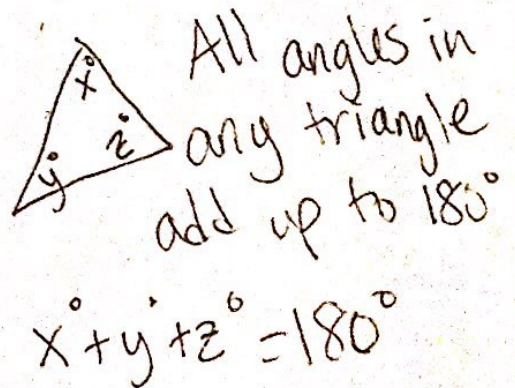 All angles in
any triangle
add up to 180°
x°
z°
y°
x° + y° + z° = 180°